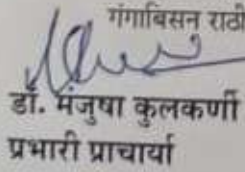 गंगाबिसन राठी
डॉ. मंजुषा कुलकर्णी
प्रभारी प्राचार्या